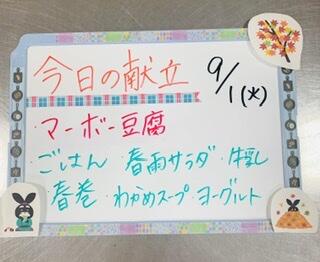 今日の献立 9/1(火)
・マーボー豆腐
・ごはん ・春雨サラダ ・牛乳
・春巻 ・わかめスープ ・ヨーグルト